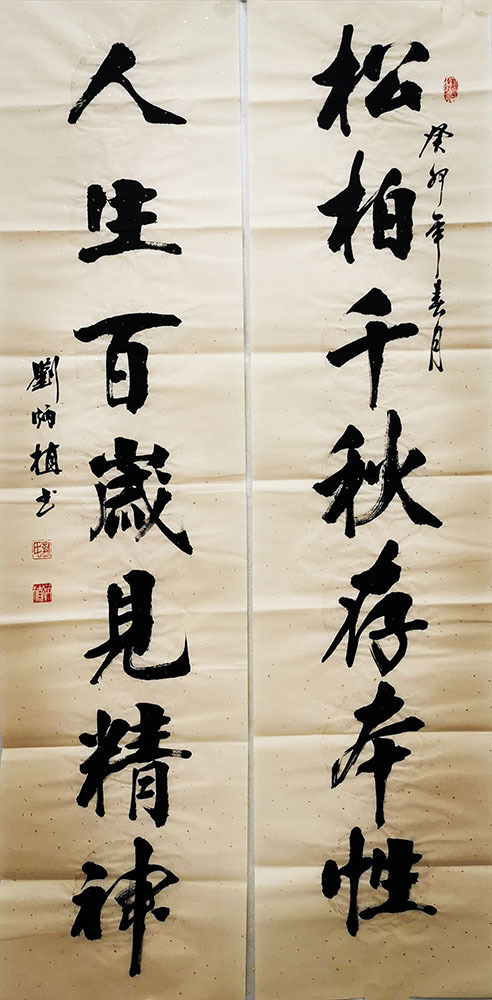 松柏千秋存本性
癸卯年春月
人生百歲見精神
劉炳植书